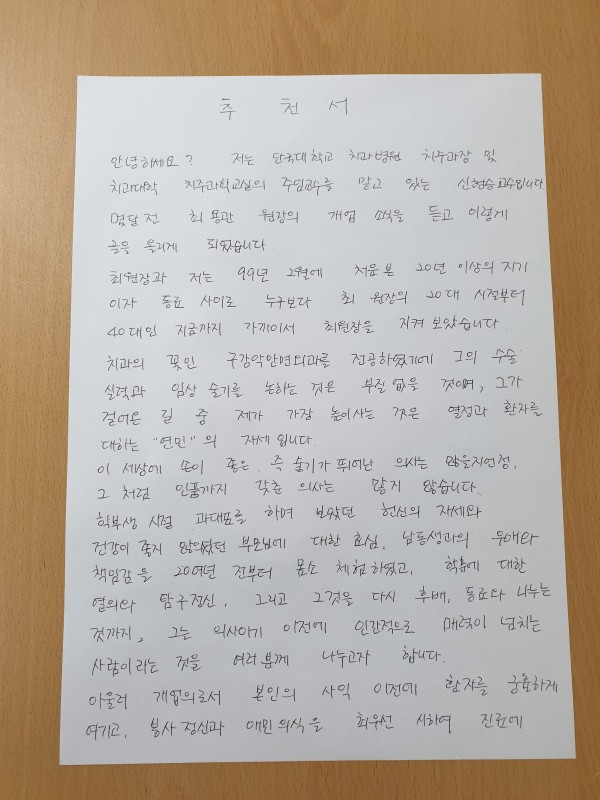 추 천 서
안녕하세요? 저는 단국대학교 치과병원 치주과장 및
치과대학 치주과학교실의 주임교수를 맡고 있는 신현승교수입니다
몇달전 최용관 원장의 개업 소식을 듣고 이렇게
글을 올리게 되었습니다.
최원장과 저는 99년 2월에 처음 본 20년 이상의 지기
이자 동료 사이로 누구보다 최 원장의 20대 시절부터
40대인 지금까지 가까이서 최원장을 지켜 보았습니다.
치과의 꽃인 구강악안면외과를 전공하였기에 그의 수술
실력과 임상 술기를 논하는 것은 부질 없을 것이며, 그가
걸어온 길 중 제가 가장 높이사는 것은 열정과 환자를
대하는 "연민"의 자세 입니다.
이 세상에 손이 좋은, 즉 술기가 뛰어난 의사는 많을지언정,
그 처럼 인품까지 갖춘 의사는 많지 않습니다.
학부생 시절 과대표를 하며 보았던 헌신의 자세와
건강이 좋지 않으셨던 부모님에 대한 효심, 남동생과의 우애와
책임감을 20여년 전부터 몸소 체험하였고, 학문에 대한
열의와 탐구정신, 그리고 그것을 다시 후배, 동료와 나누는
것까지, 그는 의사이기 이전에 인간적으로 매력이 넘치는
사람이라는 것을 여러분께 나누고자 합니다.
아울러 개업의로서 본인의 사익 이전에 환자를 긍휼하게
여기고, 봉사 정신과 애민의식을 최우선 시하여 진료에